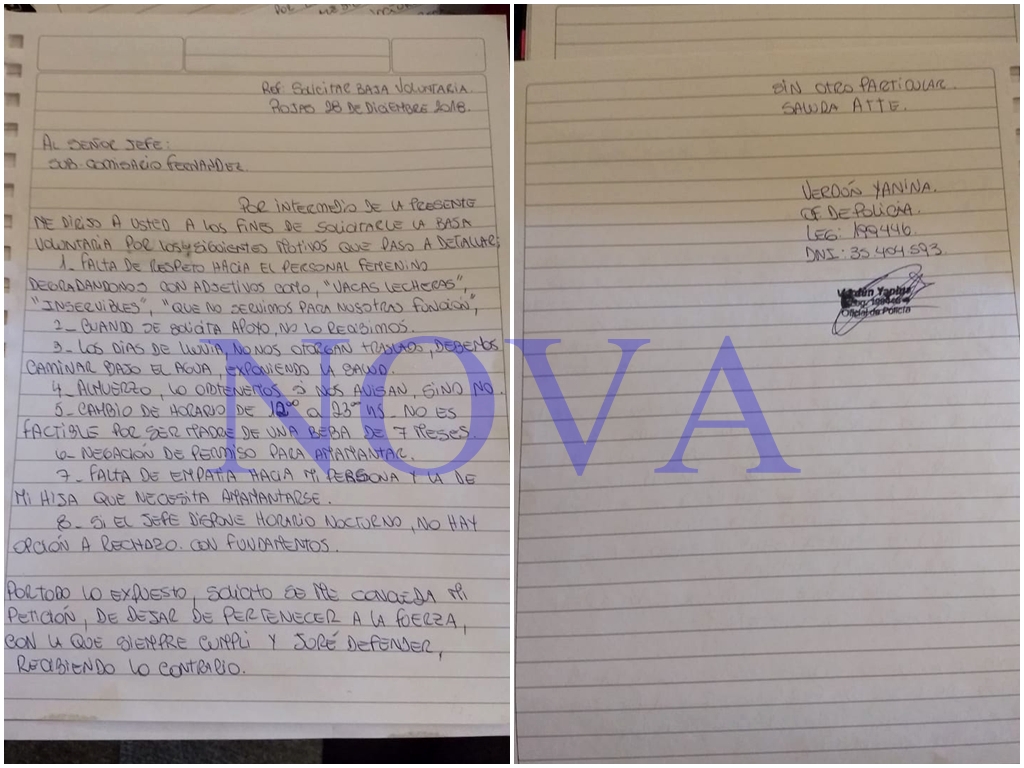 Ref. Solicitar Baja Voluntaria.
Rojas 28 de Diciembre 2018.
Al Señor Jefe:
Sub Comisario Fernandez.
Por intermedio de la presente
me dirijo a usted a los fines de solicitarle la baja
voluntaria por los siguientes motivos que paso a detallar;
1_ Falta de respeto hacia el personal femenino
degradandonos con adjetivos como, "vacas lecheras",
"inservibles", "que no servimos para nuestras función",
2_ Cuando se solicita apoyo, no lo recibimos.
3_ Los días de lluvia, no nos otorgan traslado, debemos
caminar bajo el agua, exponiendo la salud.
4_ Almuerzo, lo obtenemos si nos avisan, sino no.
5_ Cambio de horario de 12°° a 23°° hs. No es
factible por ser madre de una beba de 7 meses.
6_ Negación de permiso para amamantar.
7_ Falta de empatia hacia mi persona y la de
mi hija que necesita amamantarse.
8_ Si el jefe dispone horario nocturno, no hay
opción a rechazo. Con fundamentos.
Por todo lo expuesto, solicito se me conceda mi
petición, de dejar de pertenecer a la fuerza,
con la que siempre cumpli y juré defender,
recibiendo lo contrario.
Sin otro particular.
Saluda Atte.
Verdún Yanina.
Of de Policía.
Leg: 199446.
DNI: 35.404.593.
Verdún Yanina
Leg. 199446
Oficial de Policía
NOVA